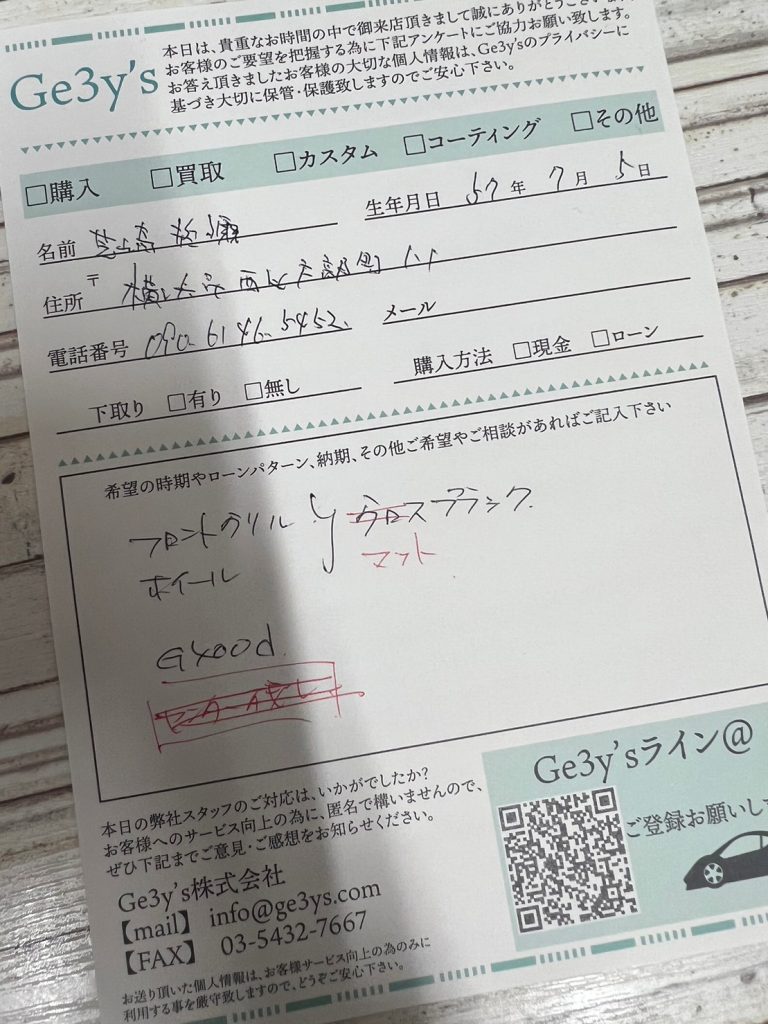 Ge3y's
本日は、貴重なお時間の中で御来店頂きまして誠にありがとうござい
お客様のご要望を把握する為に下記アンケートにご協力お願い致します。
お答え頂きましたお客様の大切な個人情報は、Ge3y'sのプライバシーに
基づき大切に保管・保護致しますのでご安心下さい。
□購入 □買取 □カスタム □コーティング □その他
名前 生年月日 57年 7月 5日
住所 〒 横浜市西区
電話番号 090.6146.5452. メール
下取り □有り □無し 購入方法 □現金 □ローン
希望の時期やローンパターン、納期、その他ご希望やご相談があればご記入下さい
フロントグリル グロスブラック
ホイール マット
GYOOd.
お客様へのサービス向上の為に、匿名で構いませんので、
本日の弊社スタッフのご対応は、いかがでしたか?
ぜひ下記までご意見・ご感想をお知らせください。
Ge3y's株式会社
【mail】 info@ge3ys.com
【FAX】 03-5432-7667
お送り頂いた個人情報は、お客様サービス向上の為のみに
利用する事を厳守致しますので、どうぞご安心下さい。
Ge3y'sライン@
ご登録お願いし